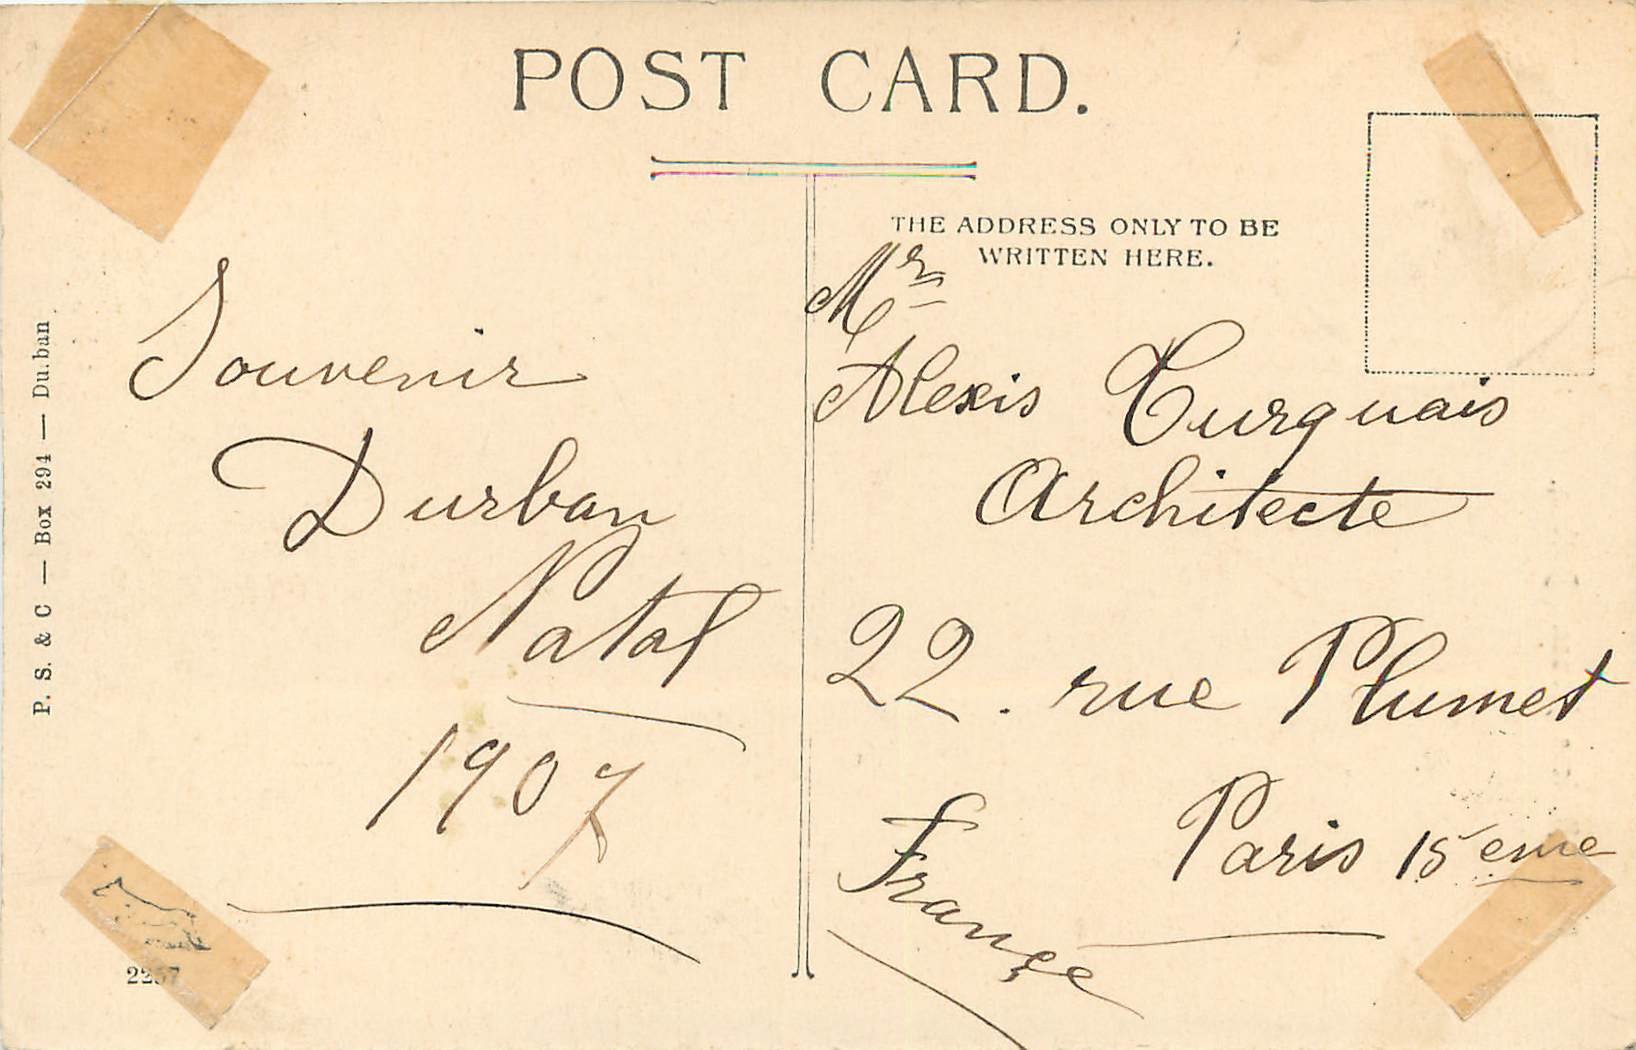 POST CARD.
THE ADDRESS ONLY TO BE
WRITTEN HERE.
P. S. & C — Box 294 — Du.ban
Souvenir
Durban
Natal
1907
Mr
Alexis Turquais
Architecte
22. rue Plumet
Paris 15eme
Françe